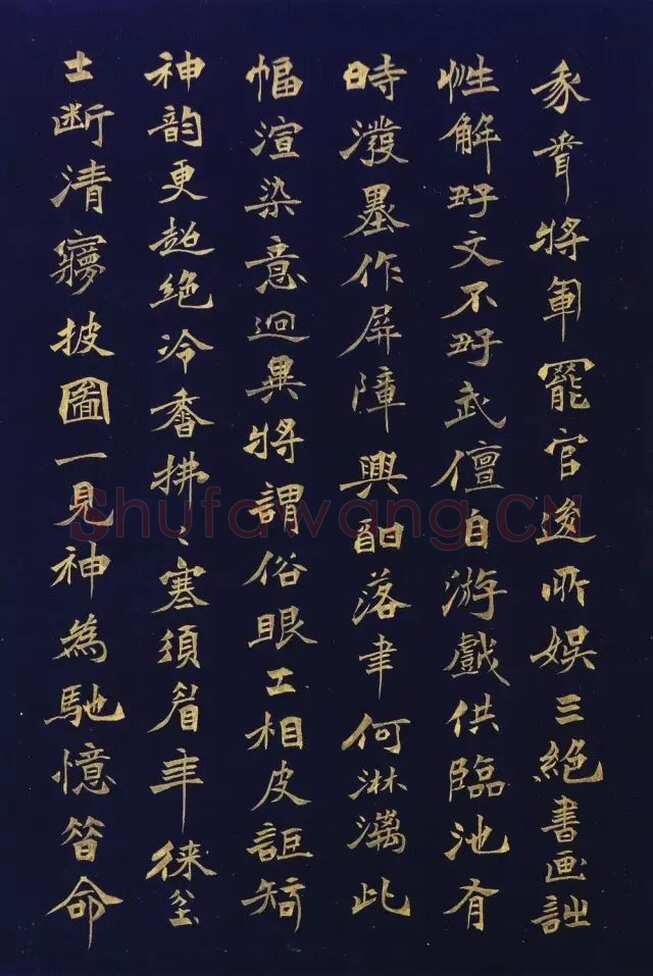 將軍罷官後所娱三絶書画詩
性解好文不好武擅自游戲供臨池有
時潑墨作屏障興酣落聿何淋漓此
幅渲染意迥異將謂俗眼工相皮詎知
神韵更超絶冷香拂々寒須眉年徠
土断清夢披圖一見神為馳憶昔命
Shufawang.CN